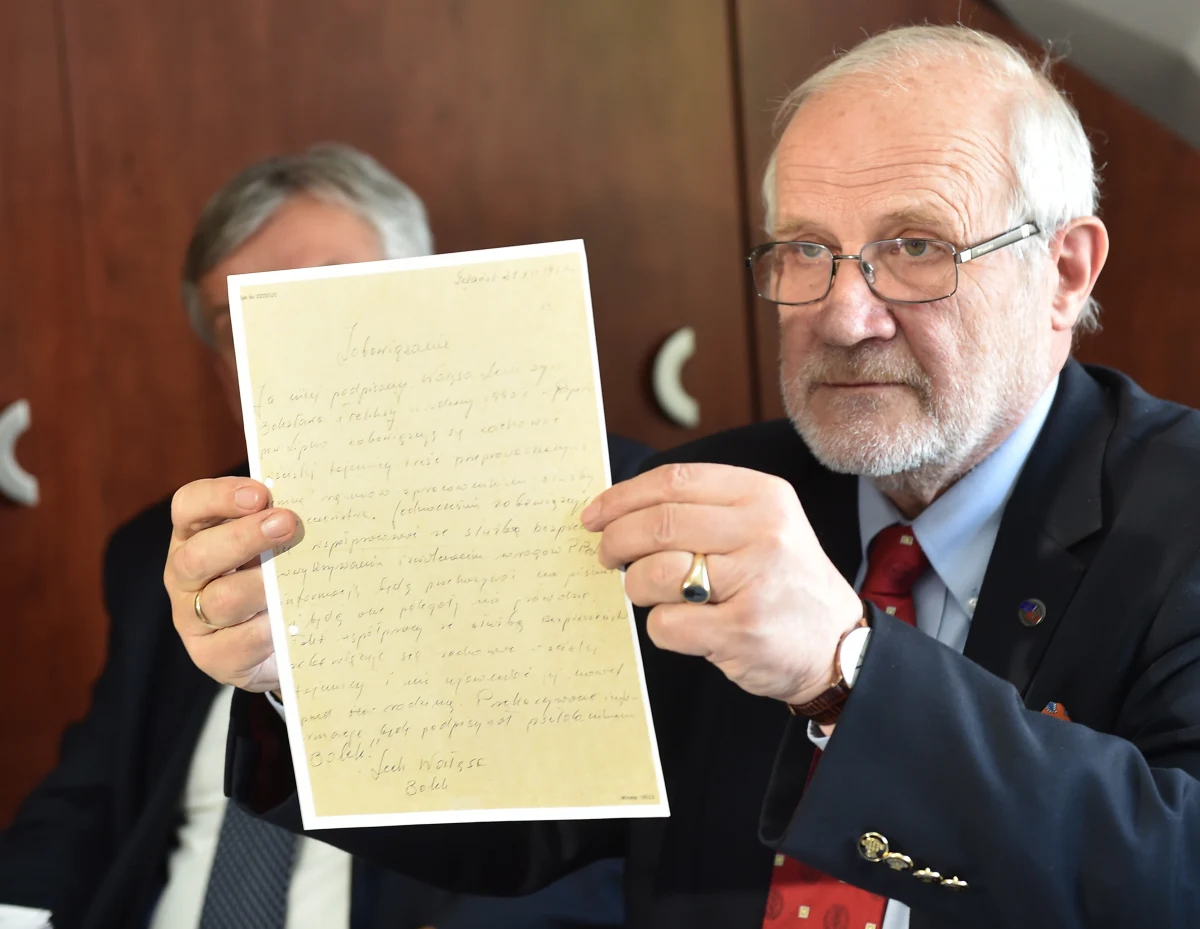 Gdańsk 21 XII
Zobowiązanie
Ja niżej podpisany Wałęsa Lech syn
Bolesława i Feliksy urodzony 1943 r.
pow Lipno zobowiązuję się zachować
ścisłej tajemnicy treść przeprowadzonych
mną rozmów z pracownikami służby
Jednocześnie zobowiązuję
współpracować ze służbą
wykrywaniu i zwalczaniu wrogów PRL
informacje będę przekazywał na piśmie
i będą one polegały na prawdzie.
Fakt współpracy ze służbą bezpieczeństwa
zobowiązuję się zachować w ścisłej
tajemnicy i nie ujawniać jej nawet
przed rodziną. Przekazywane infor-
macje będę podpisywał pseudonimem
Bolek"
Lech Wałęsa
Bolek